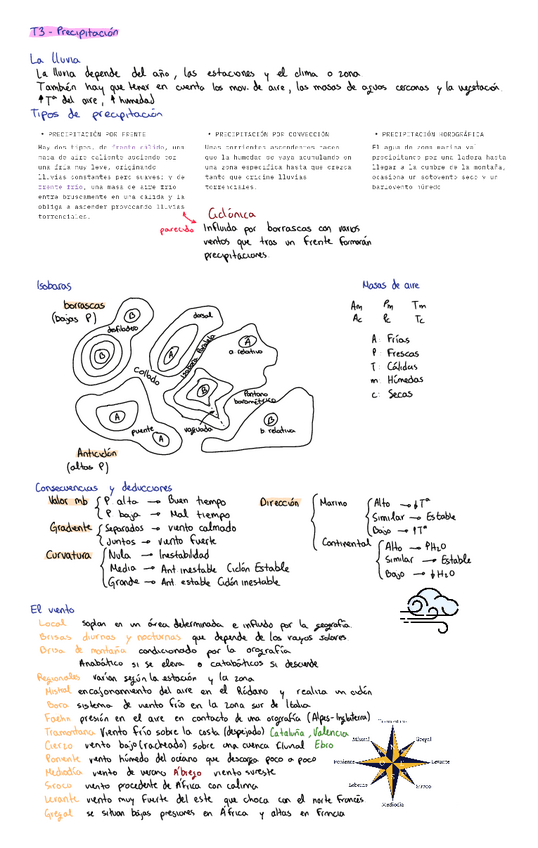 T3 - Precipitación
La lluvia
La lluvia depende del año, las estaciones y el clima o zona
También hay que tener en cuenta los mov. de aire, las masas de aguas cercanas y la vegetación
↑T° del aire, ↑ humedad
Tipos de precipitación
• PRECIPITACIÓN POR FRENTE
Hay dos tipos, de frente calido, una
masa de aire caliente asciende por
una fria muy leve, originando
lluvias constantes pero suaves; y de
frente frio, una masa de aire frio
entra bruscamente en una calida y la
obliga a ascender provocando lluvias
torrenciales.
• PRECIPITACIÓN POR CONVECCIÓN
Unas corrientes ascendentes hacen
que la humedad se vaya acumulando en
una zona especifica hasta que crezca
tanto que origine lluvias
torrenciales.
• PRECIPITACIÓN HOROGRÁFICA
El agua de zona marina va
precipitando por una ladera hasta
llegar a la cumbre de la montaña,
ocasiona un sotovento seco y un
barlovento húmedo
parecido
Ciclónica
Influida por borrascas con varios
vientos que tras un frente formarán
precipitaciones
Isobaras
borrascas
(bajas P)
desfiladero
B
B
dorsal
A
isobara
A
a relativo
Collado
B
Pantano
barométrico
vaguada
A
puente
A
B
b relativa
Anticiclón
(altas P)
Masas de aire
Am Pm Tm
Ac Pc Tc
A: Frías
P: Frescas
T: Cálidas
m: Húmedas
c: Secas
Consecuencias y deducciones
Valor mb
P alta → Buen tiempo
P baja → Mal tiempo
Gradiente
Separados → viento calmado
Juntos → viento fuerte
Curvatura
Nula → Inestabilidad
Media → Ant inestable Ciclón Estable
Grande → Ant. estable Ciclón inestable
Dirección
Marino
Alto → ↓T°
Similar → Estable
Bajo → ↑T°
Continental
Alto → ↑H₂O
Similar → Estable
Bajo → ↓H₂O
El viento
Local soplan en un área determinada e influido por la geografía
Brisas diurnas y nocturnas que depende de los rayos solares
Brisa de montaña condicionado por la orografía
Anabático si se eleva o catabáticos si desciende
Regionales varían según la estación y la zona
Mistral encajonamiento del aire en el Ródano y realiza un ciclón
Bora sistema de viento frío en la zona sur de Italia
Foehn presión en el aire en contacto de una orografía (Alpes-Inglaterra)
Tramontana Viento frío sobre la costa (despejado) Cataluña, Valencia
Cierzo viento bajo (racheado) sobre una cuenca fluvial Ebro
Poniente viento húmedo del océano que descarga poco a poco
Mediodía viento de verano Ábrego viento sureste
Siroco viento procedente de África con calima
Levante viento muy fuerte del este que choca con el norte Francés
Gregal se sitúan bajas presiones en África y altas en Francia
Tramontana
Mistral
Gregal
Poniente
Levante
Lebeche
Siroco
Mediodía